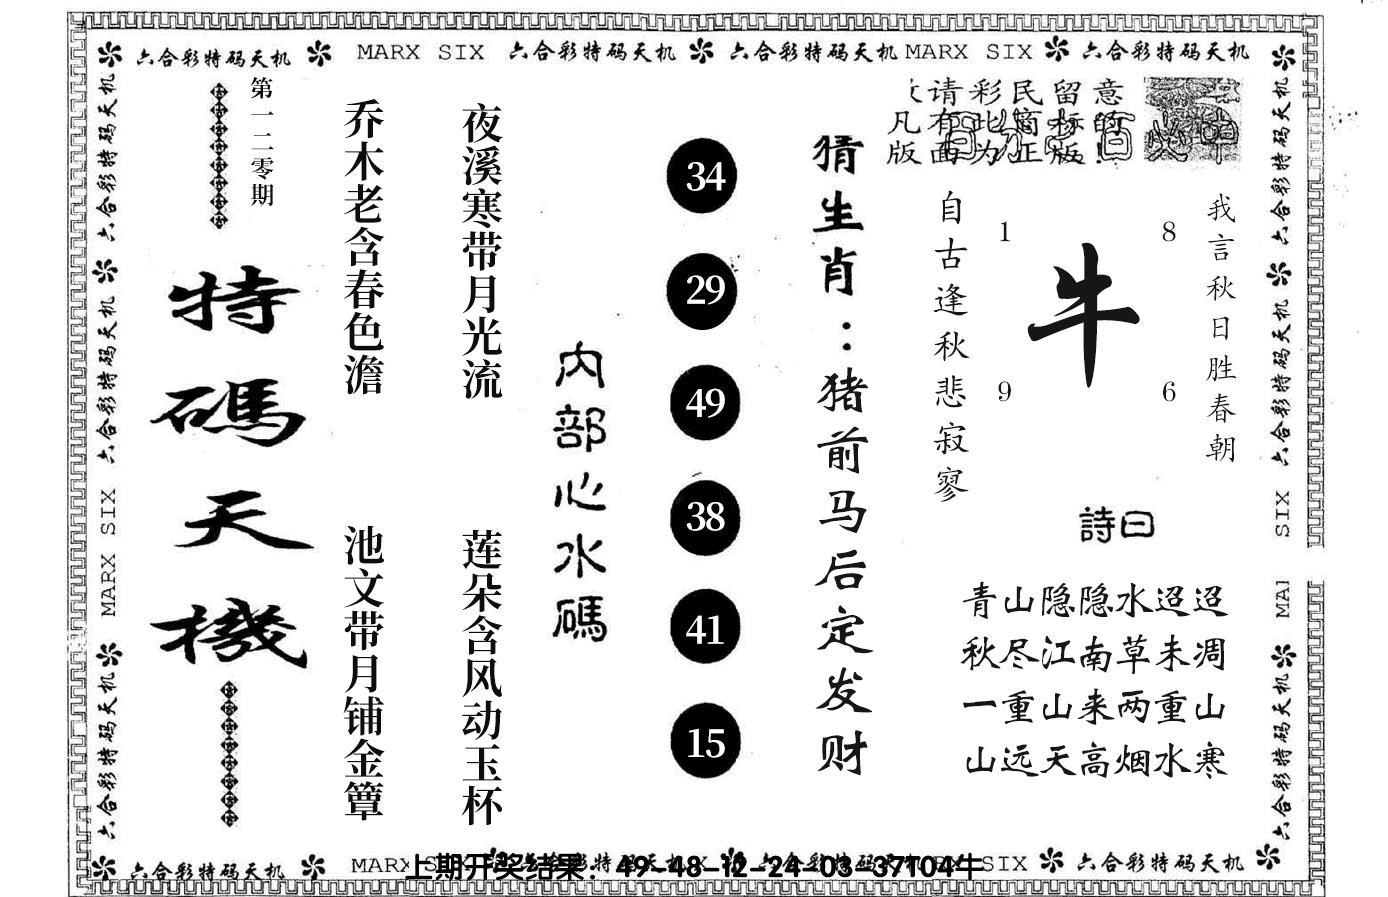 六合彩特码天机 MARX SIX 六合彩特码天机 六合彩特码天机 MARX SIX 六合彩特码天机
六合彩特码天机
六合彩特码天机
MARX SIX
六合彩特码天机
第一二零期
特碼天機
乔木老含春色澹
池文带月铺金簟
夜溪寒带月光流
莲朵含风动玉杯
内部心水碼
34
29
49
38
41
15
猜生肖：猪前马后定发财
请彩民留意
凡有此商标的
版面为正版!
自古逢秋悲寂寥
1
8
牛
9
6
我言秋日胜春朝
詩曰
青山隐隐水迢迢
秋尽江南草未凋
一重山来两重山
山远天高烟水寒
六合彩特码天机
六合彩特码天机
SIX
MAI
六合彩特码天机
六合彩特码天机
上期开奖结果：49-48-12-24-03-37T04牛
SIX 六合彩特码天机